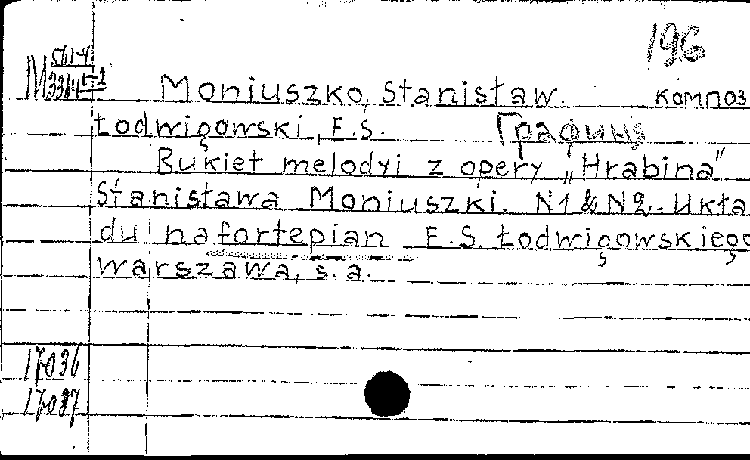 196
Moniuszko, Stanisław. композ
Łodwigowski, F.S. Графиня
Bukiet melodyi z opery „Hrabina"
Stanisława Moniuszki. N1 & N2. Ukła
du na fortepian F.S. Łodwigowskiego
Warszawa, s.a.
17036
17037